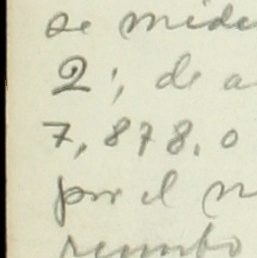 se mide
2; de a
7,878.0
por el n
rumbo